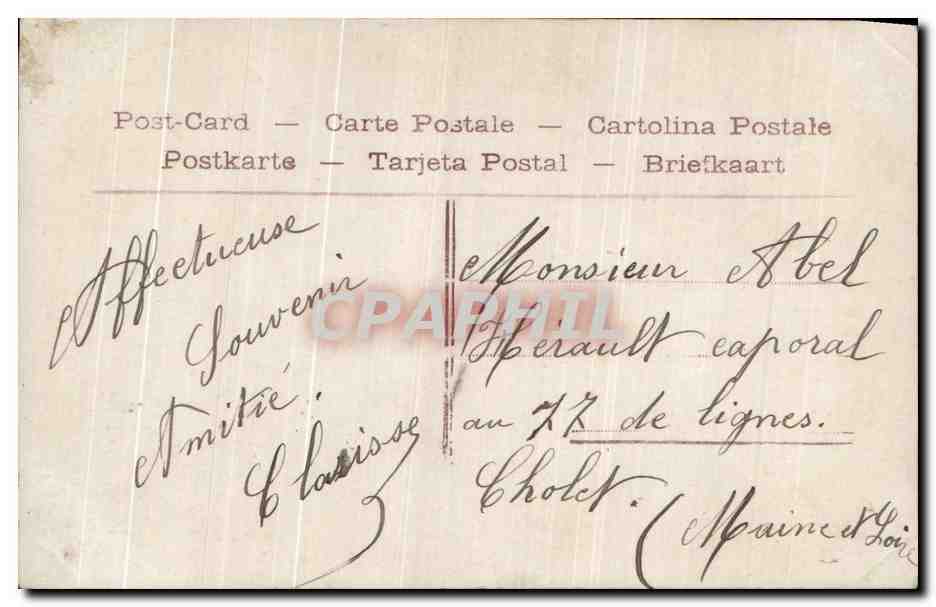 Post-Card — Carte Postale — Cartolina Postale
Postkarte — Tarjeta Postal — Briefkaart
Affectueuse
Souvenir
Amitié.
Clarisse
Monsieur Abel
Hérault caporal
au 77 de lignes.
Cholet.
(Maine et Loire
CPAPHIL